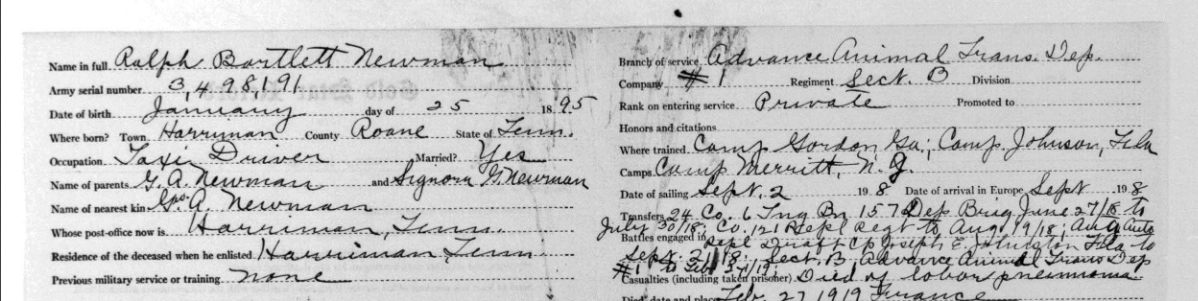 Name in full Ralph Bartlett Newman
Army serial number 3,498,191
Date of birth January day of 25 1895
Where born? Town Harriman County Roane State of Tenn.
Occupation Taxi Driver Married? Yes
Name of parents G. A. Newman and Signora Newman
Name of nearest kin Geo. A. Newman
Whose post-office now is Harriman, Tenn.
Residence of the deceased when he enlisted Harriman Tenn
Previous military service or training none
Branch of service Advance Animal Trans Dep.
Company # 1 Regiment Sect. B Division
Rank on entering service Private Promoted to
Honors and citations
Where trained Camp Gordon Ga; Camp Johnson, Fla
Camps Camp Merritt, N. J.
Date of sailing Sept. 2 1918 Date of arrival in Europe Sept 1918
Transfers 24 Co. 6 Tng Bn 157 Dep Brig June 27/18 to
July 30/18; Co. 121 Repl Regt to Aug 19/18; Auto
Battles engaged in Repl Draft Cp Joseph E. Johnston Fla to
Sept. 21/18; Sect. B, Advance Animal Trans Dep
#1 to
Casualties (including taken prisoner) Died of lobar pneumonia.
Died, date and place Feb. 27 1919 France